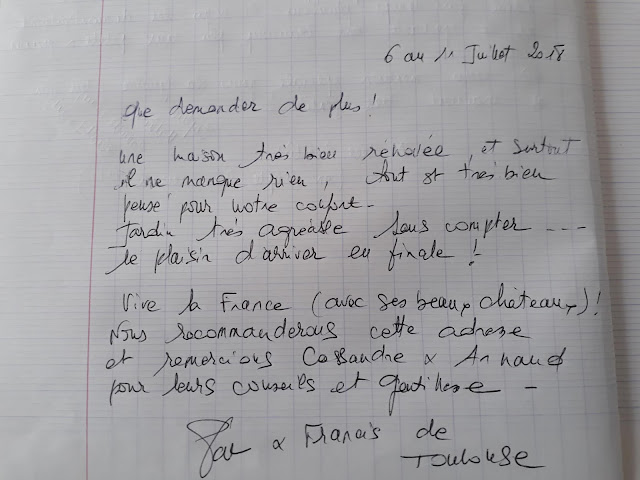 6 au 11 Juillet 2018
Que demander de plus !
Une maison très bien rénovée, et surtout
il ne manque rien, tout est très bien
pensé pour notre confort -
Jardin très agréable sans compter ---
le plaisir d'arriver en finale !
Vive la France (avec ses beaux châteaux) !
Nous recommanderons cette adresse
et remercions Cassandre & Arnaud
pour leurs conseils et gentillesse -
& Francis de
Toulouse